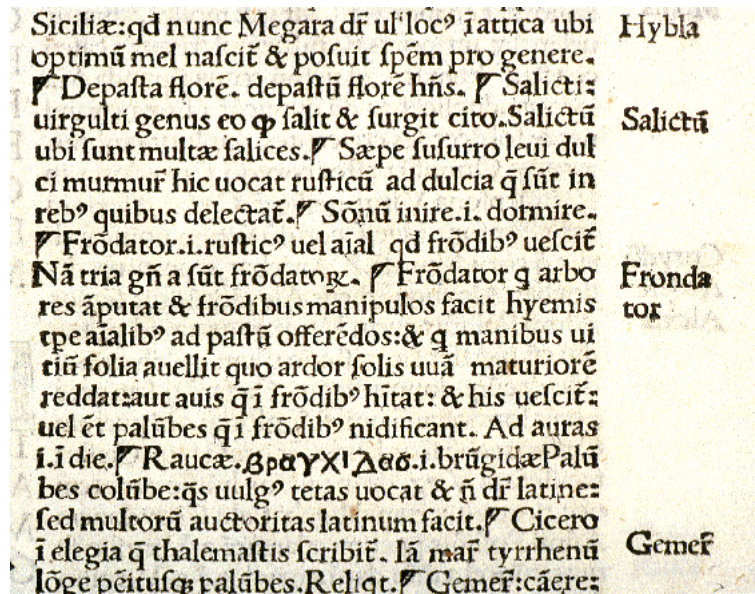 Siciliæ:qđ nunc Megara dr̃ ul'locꝰ ĩattica ubi
Hybla
optimũ mel naſcit̃ & poſuit ſpẽm pro genere.
¶Depaſta florẽ. depaſtũ florẽ hñs. ¶Salicti:
uirgulti genus eo ꝙ ſalit & ſurgit cito.Salictũ
Salictũ
ubi ſunt multæ ſalices.¶ Sæpe ſuſurro leui dul
ci murmur̃ hic uocat ruſticũ ad dulcia q̃ ſũt in
rebꝰ quibus delectat̃.¶ Sõnũ inire.i. dormire.
¶Frõdator.i.ruſticꝰ uel aĩal qđ frõdibꝰ ueſcit̃
Nã tria gñ a ſũt frõdatoꝝ. ¶Frõdator q arbo
Fronda
res ãputat & frõdibus manipulos facit hyemis
tor
tpe aĩalibꝰ ad paſtũ offerẽdos:& q manibus ui
tiũ folia auellit quo ardor ſolis uuã maturiorẽ
reddat:aut auis q̃ ĩ frõdibꝰ hĩtat: & his ueſcit̃:
uel ẽt palũbes q̃ ĩ frõdibꝰ nidificant. Ad auras
i.ĩ die.¶Raucæ.βραγχιΔασ.i.brũgidæPalũ
bes colũbe:q̃s uulgꝰ tetas uocat & ñ dr̃ latine:
ſed multorũ auctoritas latinum facit.¶ Cicero
ĩ elegia q̃ thalemaſtis ſcribit̃. Iã mar̃ tyrrhenũ
Gemer̃
lõge pẽituſꝗ palũbes.Reliqt.¶ Gemer̃:cãere: